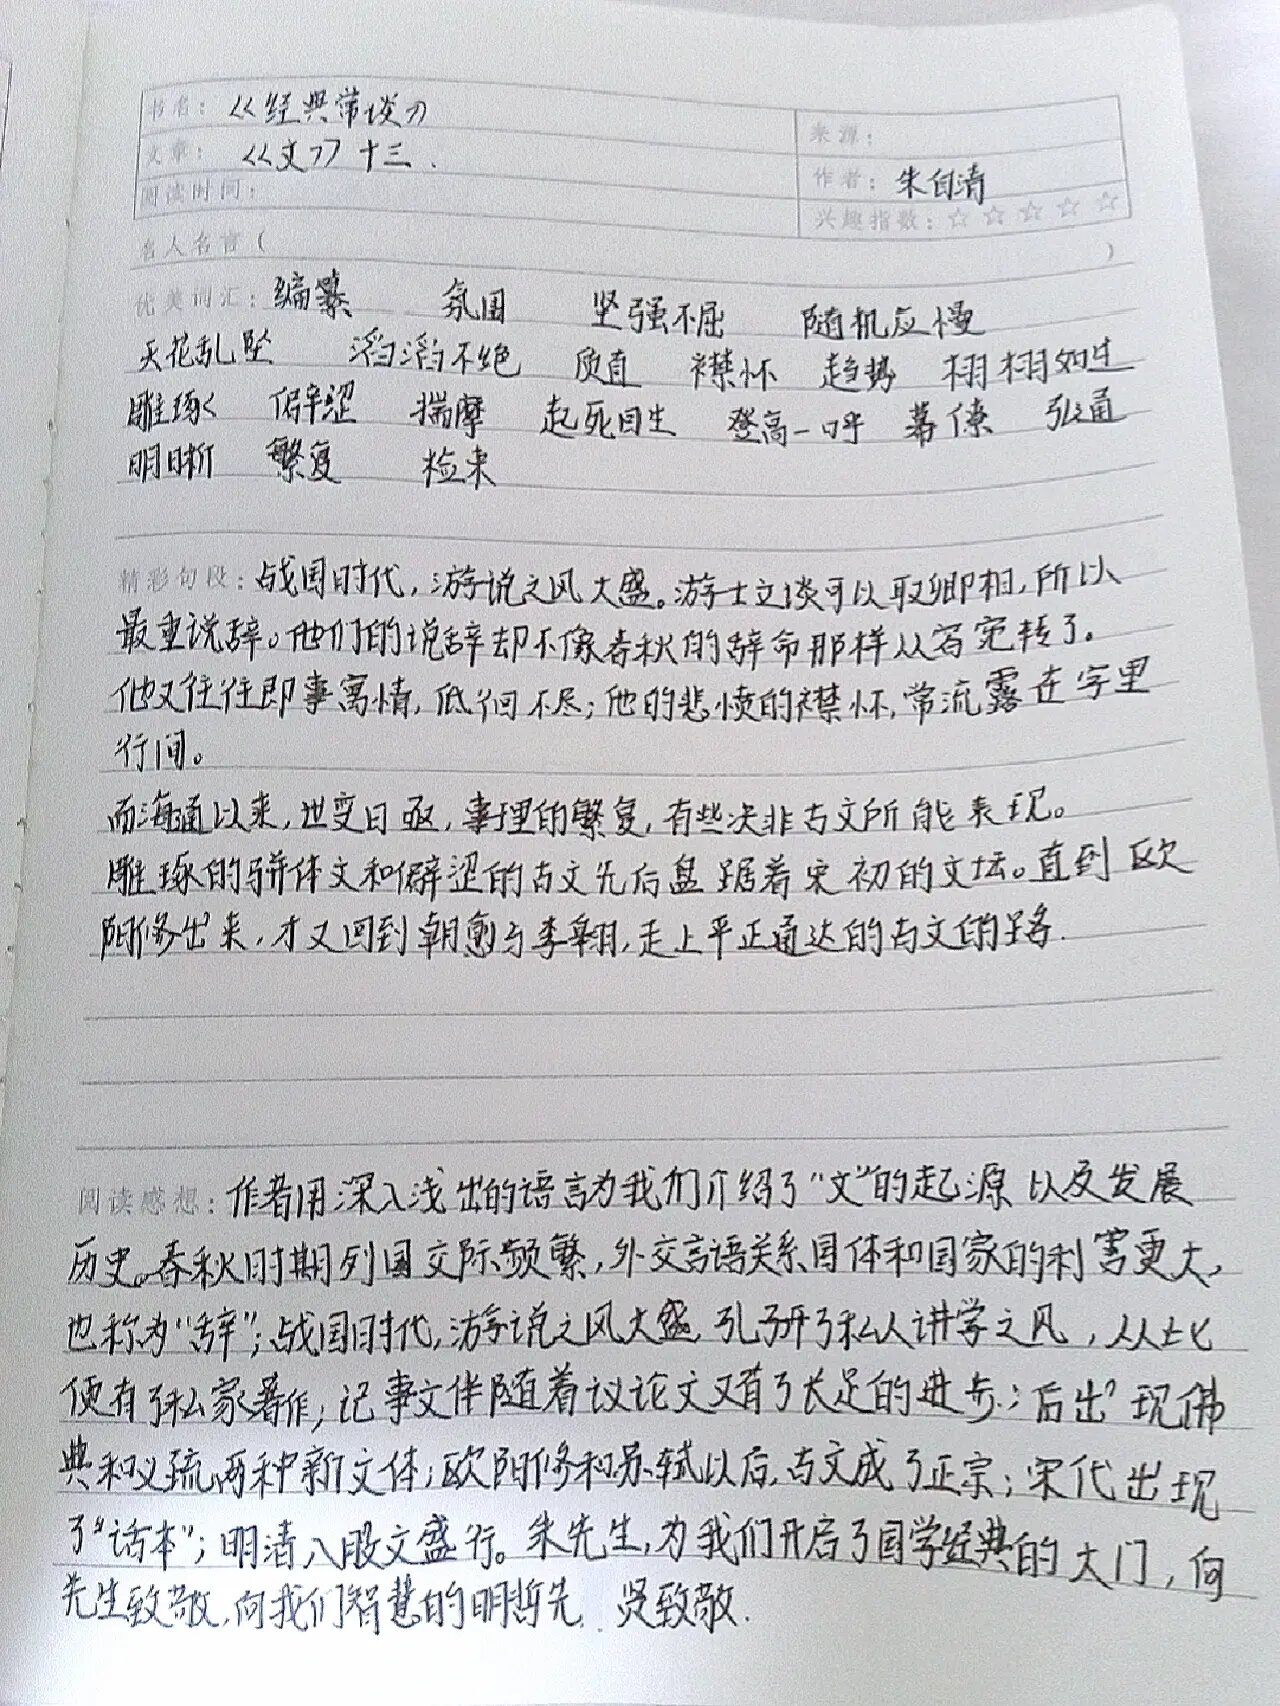 书名：《经典常谈》
文章：《文》十三.
来源：
阅读时间：
作者：朱自清
兴趣指数：☆ ☆ ☆ ☆ ☆
名人名言（ ）
优美词汇：编纂 氛围 坚强不屈 随机应慢
天花乱坠 滔滔不绝 质直 襟怀 趋势 栩栩如生
雕琢 僻涩 揣摩 起死回生 登高一呼 幕僚 弘通
明晰 繁复 检束
精彩句段：战国时代，游说之风大盛。游士立谈可以取卿相，所以
最重说辞。他们的说辞却不像春秋的辞命那样从容宛转了。
他又往往即事寓情，低徊不尽；他的悲愤的襟怀，常流露在字里
行间。
而海通以来，世变日亟，事理的繁复，有些决非古文所能表现。
雕琢的骈体文和僻涩的古文先后盘踞着宋初的文坛。直到欧
阳修出来，才又回到韩愈与李翱，走上平正通达的古文的路.
阅读感想：作者用深入浅出的语言为我们介绍了“文”的起源以及发展
历史。春秋时期列国交际频繁，外交言语关系国体和国家的利害更大，
也称为“辞”；战国时代，游说之风大盛，孔子开了私人讲学之风，从此
便有了私家著作；记事文伴随着议论文又有了长足的进步；后出现佛
典和义疏两种新文体；欧阳修和苏轼以后，古文成了正宗；宋代出现
了“话本”；明清八股文盛行。朱先生，为我们开启了国学经典的大门，向
先生致敬，向我们智慧的明哲先贤致敬.